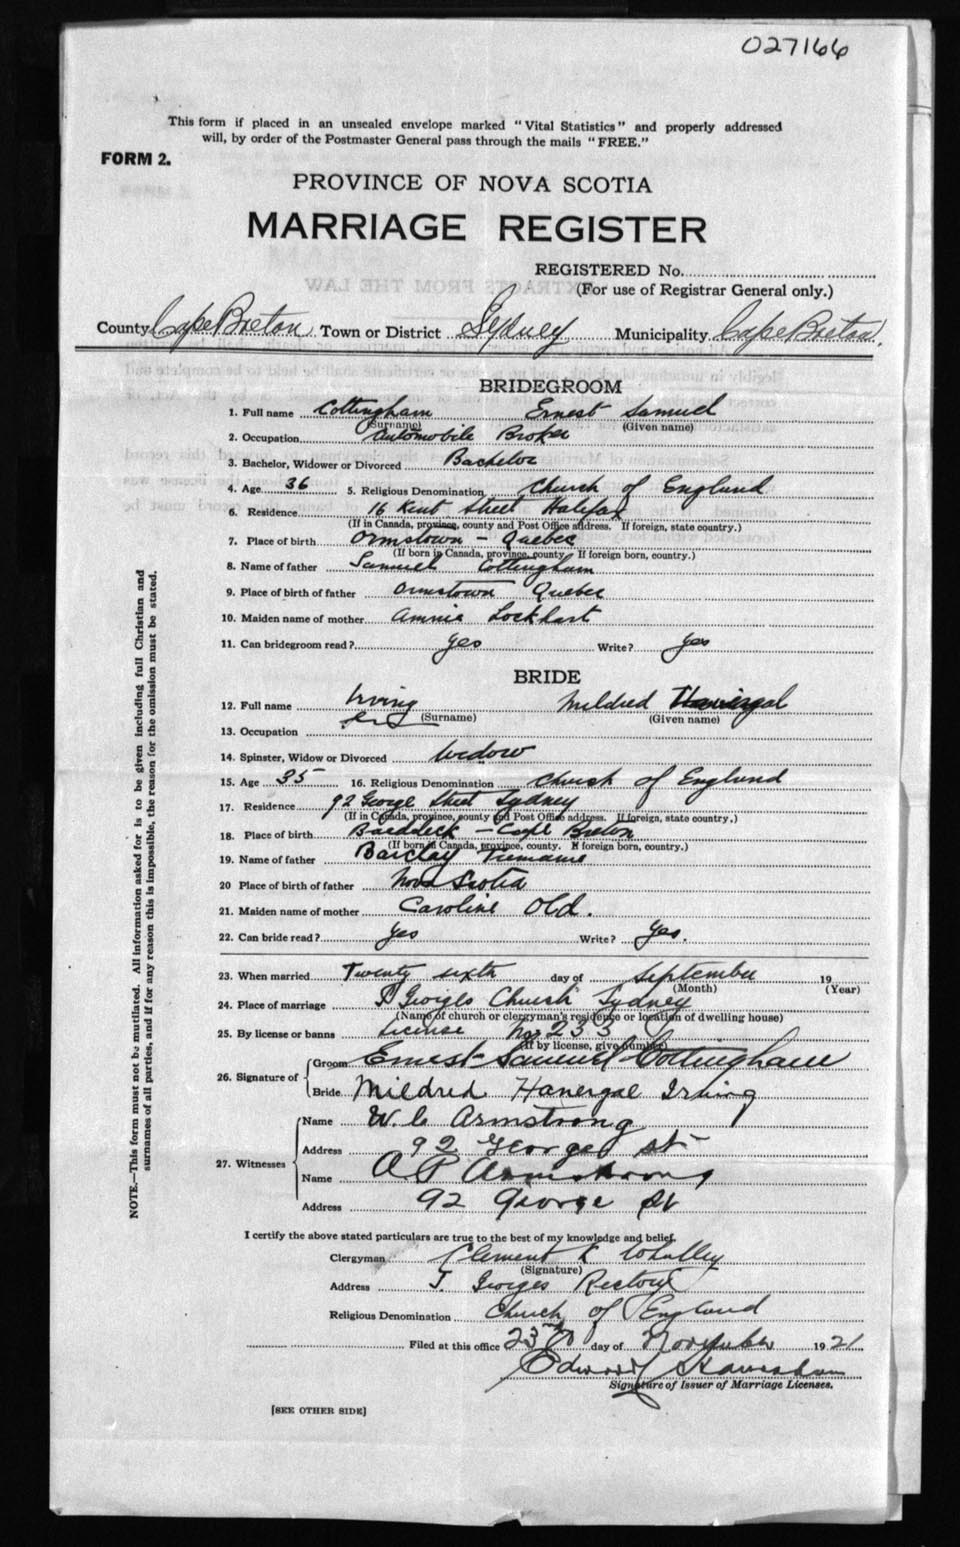 027166
This form if placed in an unsealed envelope marked "Vital Statistics" and properly addressed
will, by order of the Postmaster General pass through the mails "FREE."
FORM 2.
PROVINCE OF NOVA SCOTIA
MARRIAGE REGISTER
REGISTERED No.
(For use of Registrar General only.)
County Cape Breton Town or District Sydney Municipality Cape Breton
BRIDEGROOM
1. Full name Cottingham Ernest Samuel
(Surname) (Given name)
2. Occupation Automobile Broker
3. Bachelor, Widower or Divorced Bachelor
4. Age 36 5. Religious Denomination Church of England
6. Residence 16 Kent Street Halifax
(If in Canada, province, county and Post Office address. If foreign, state country.)
7. Place of birth Ormstown - Quebec
(If born in Canada, province, county. If foreign born, country.)
8. Name of father Samuel Cottingham
9. Place of birth of father Ormstown Quebec
10. Maiden name of mother Annie Lockhart
11. Can bridegroom read? yes Write? yes
BRIDE
12. Full name Irving Mildred
(Surname) (Given name)
13. Occupation
14. Spinster, Widow or Divorced Widow
15. Age 35 16. Religious Denomination Church of England
17. Residence 92 George Street Sydney
(If in Canada, province, county and Post Office address. If foreign, state country,)
18. Place of birth Baddeck - Cape Breton
(If born in Canada, province, county. If foreign born, country.)
19. Name of father Barclay
20 Place of birth of father Nova Scotia
21. Maiden name of mother Caroline Old.
22. Can bride read? yes Write? yes.
23. When married Twenty sixth day of September 19
(Month) (Year)
24. Place of marriage St Georges Church Sydney
(Name of church or clergyman's residence or location of dwelling house)
25. By license or banns License No. 233
(If by license, give number)
26. Signature of Groom Ernest Samuel Cottingham
Bride Mildred Hanergal Irving
27. Witnesses Name W. C Armstrong
Address 92 George St
Name A P Armstrong
Address 92 George St
I certify the above stated particulars are true to the best of my knowledge and belief.
Clergyman Clement Whalley
(Signature)
Address St. Georges Rectory
Religious Denomination Church of England
Filed at this office 23rd day of November 1921
Edward
Signature of Issuer of Marriage Licenses.
[SEE OTHER SIDE]
NOTE.—This form must not be mutilated. All information asked for is to be given including full Christian and
surnames of all parties, and if for any reason this is impossible, the reason for the omission must be stated.